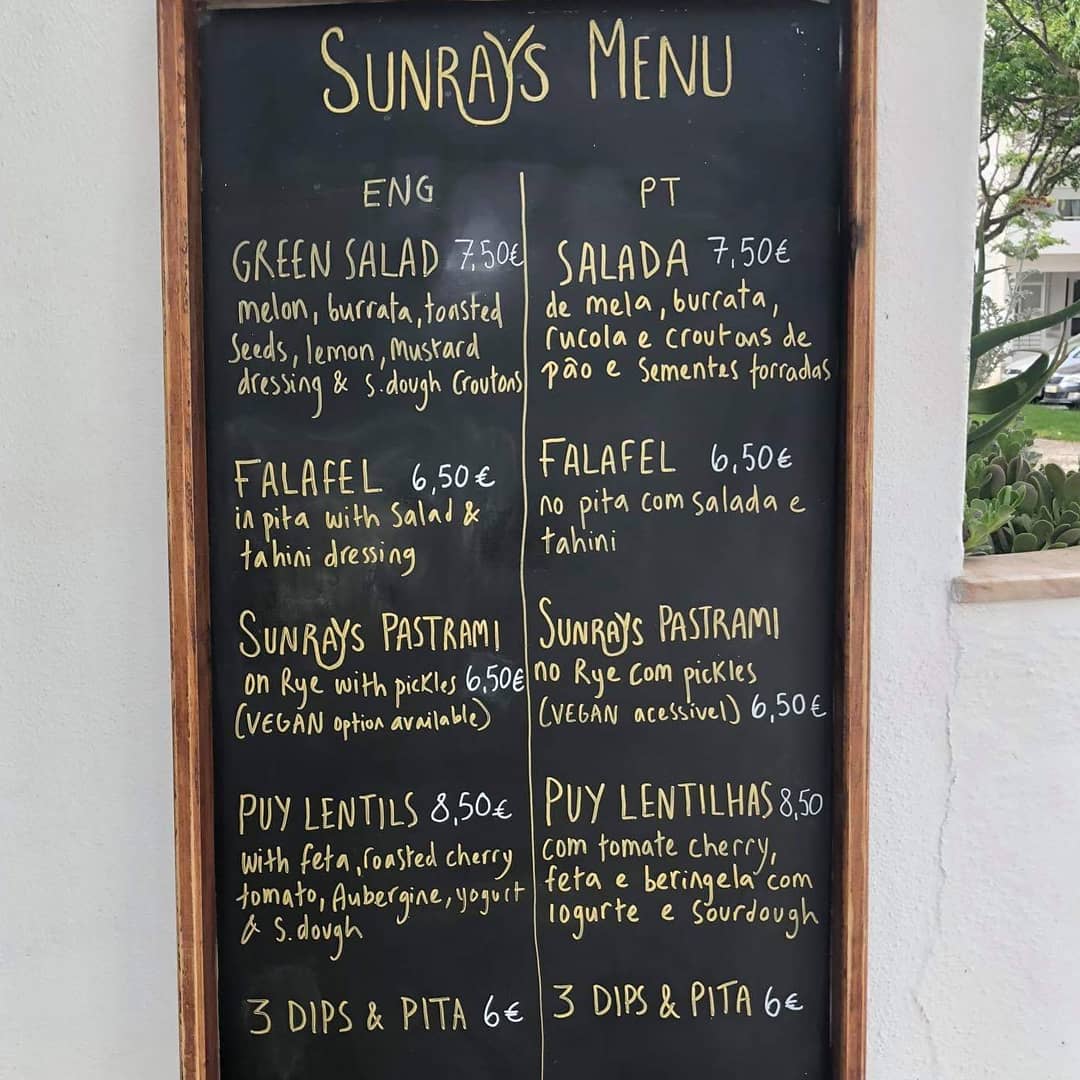 SUNRAYS MENU
ENG
GREEN SALAD 7,50€
melon, burrata, toasted
Seeds, lemon, Mustard
dressing & S.dough Croutons
FALAFEL 6,50€
in pita with Salad &
tahini dressing
SUNRAYS PASTRAMI
on Rye with pickles 6,50€
(VEGAN option available)
PUY LENTILS 8,50€
with feta, roasted cherry
tomato, Aubergine, yogurt
& S.dough
3 DIPS & PITA 6€
PT
SALADA 7,50€
de mela, burrata,
rucola e croutons de
pão e Sementes torradas
FALAFEL 6,50€
no pita com salada e
tahini
SUNRAYS PASTRAMI
no Rye com pickles
(VEGAN acessível) 6,50€
PUY LENTILHAS 8,50
com tomate cherry,
feta e beringela com
Iogurte e Sourdough
3 DIPS & PITA 6€